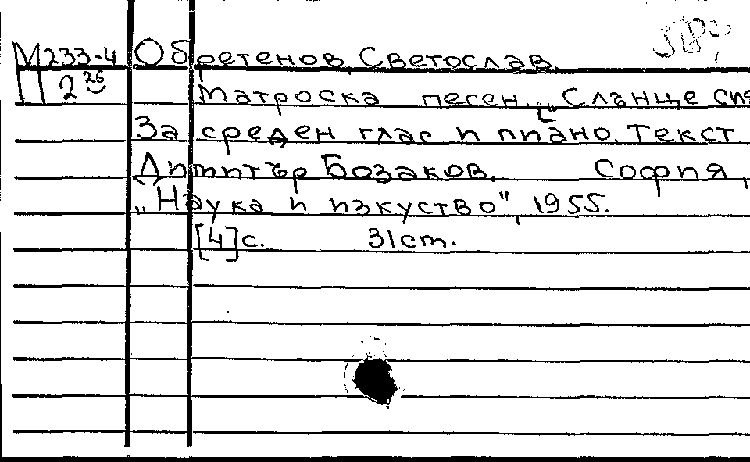 М233-4 Обретенов, Светослав
П 2 26
Матроска песен. „Слънце сия
За среден глас и пиано. Текст
Димитър Бозаков. София,
„Наука и изкуство", 1955.
[4] с. 31 cm.